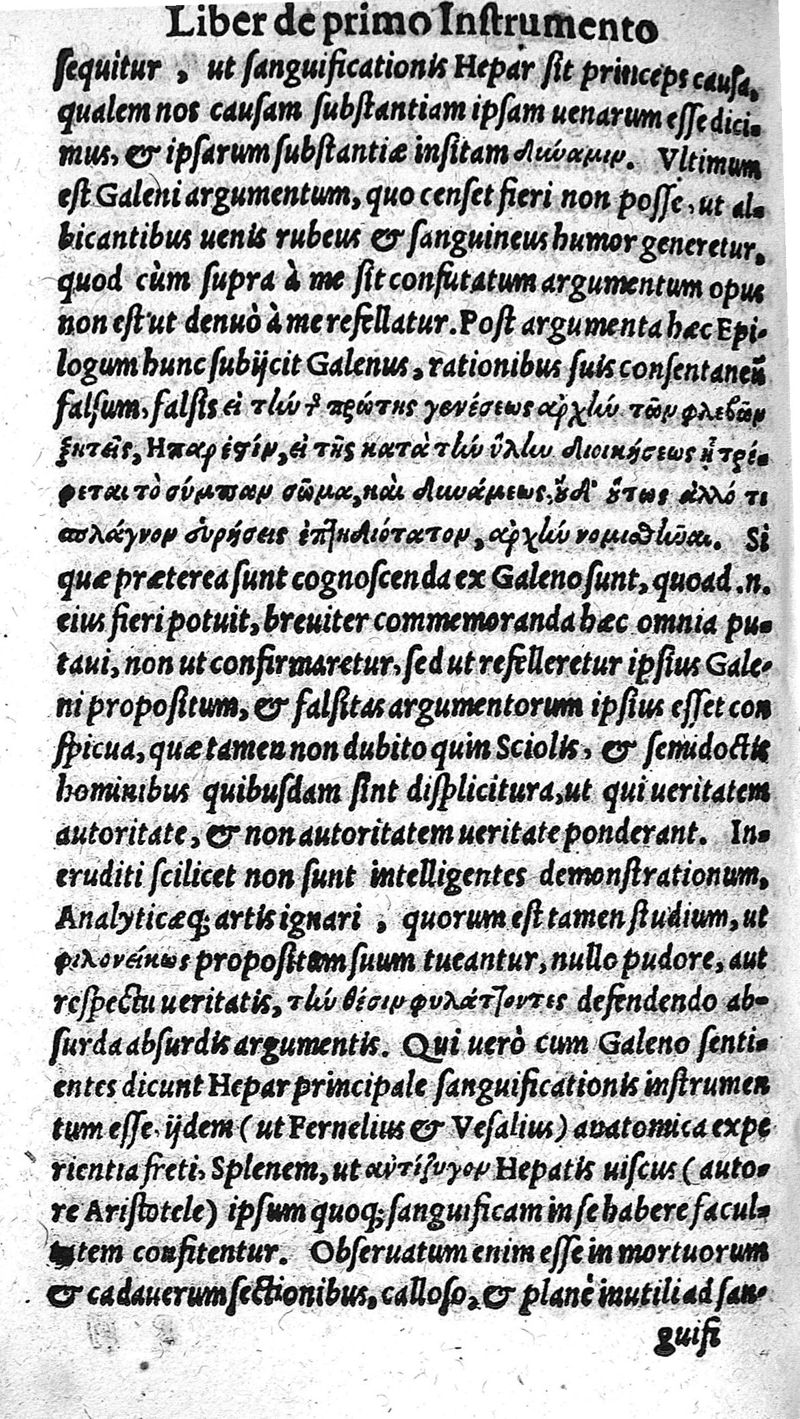 Liber de primo Inſtrumento
ſequitur, ut ſanguificationis Hepar ſit princeps cauſa,
qualem nos cauſam ſubſtantiam ipſam uenarum eſſe dici-
mus, & ipſarum ſubſtantiæ inſitam δύναμιν. Vltimum
eſt Galeni argumentum, quo cenſet fieri non poſſe, ut al-
bicantibus uenis rubeus & ſanguineus humor generetur,
quod cùm ſupra à me ſit confutatum argumentum opus
non eſt ut denuò à me refellatur. Poſt argumenta hæc Epi-
logum hunc ſubijcit Galenus, rationibus ſuis conſentaneũ
falſum, falſis εἰ τὴν τ͂ πρώτης γενέσεως ἀρχὴν τῶν φλεβῶν
ζητεῖς, Ηπαρ ἐστίν, εἰ τῆς κατὰ τὴν ὕλην διοικήσεως ᾗ τρέ-
φεται τὸ σύμπαν σῶμα, καὶ δυνάμεως, οὐδ' οὕτως ἀλλό τι
σπλάγνον εὑρήσεις ἐπιτηδιότατον, ἀρχὴν νομισθῆναι. Si
quæ præterea ſunt cognoſcenda ex Galeno ſunt, quoad .n.
eius fieri potuit, breuiter commemoranda hæc omnia pu-
taui, non ut confirmaretur, ſed ut refelleretur ipſius Gale-
ni propoſitum, & falſitas argumentorum ipſius eſſet con
ſpicua, quæ tamen non dubito quin Sciolis, & ſemidoctis
hominibus quibuſdam ſint diſplicitura, ut qui ueritatem
autoritate, & non autoritatem ueritate ponderant. In-
eruditi ſcilicet non ſunt intelligentes demonſtrationum,
Analyticæq; artis ignari, quorum eſt tamen ſtudium, ut
φιλονείκως propoſitum ſuum tueantur, nullo pudore, aut
reſpectu ueritatis, τὴν θέσιν φυλάττοντες defendendo ab-
ſurda abſurdis argumentis. Qui uerò cum Galeno ſenti-
entes dicunt Hepar principale ſanguificationis inſtrumen
tum eſſe, ijdem (ut Fernelius & Veſalius) anatomica expe
rientia freti, Splenem, ut ἀντίζυγον Hepatis uiſcus (auto-
re Ariſtotele) ipſum quoq; ſanguificam in ſe habere facul-
tatem confitentur. Obſeruatum enim eſſe in mortuorum
& cadauerum ſectionibus, calloſo, & planè inutili ad ſan-
guifi